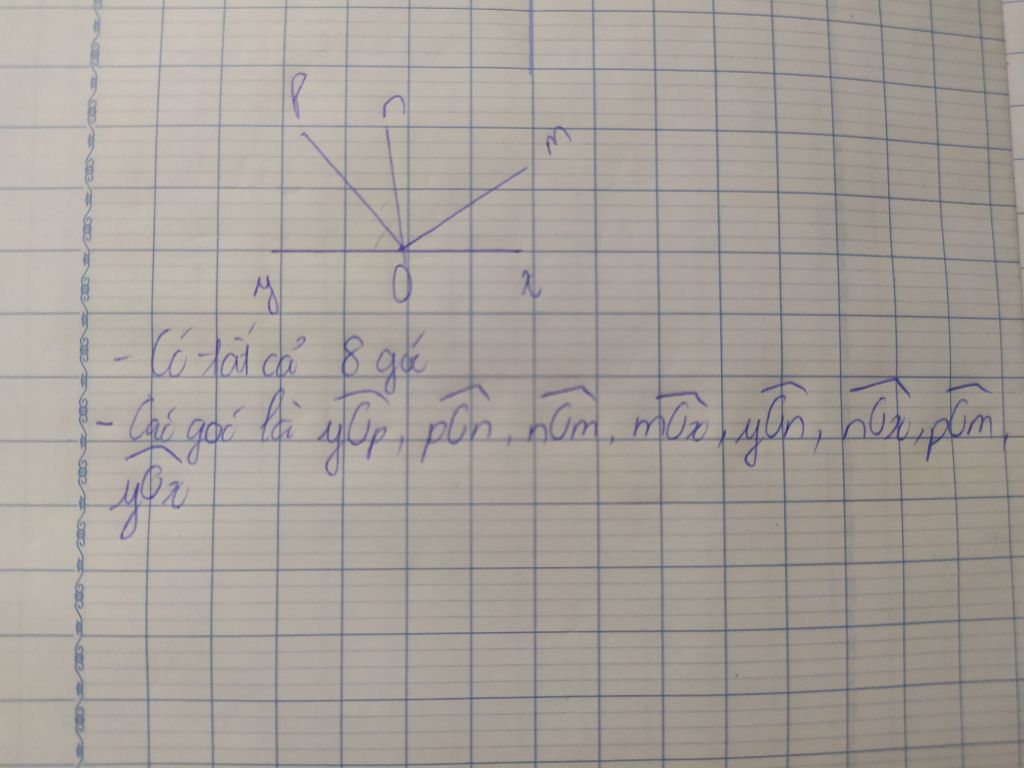 p n
m
y O x
- Có tất cả 8 góc
- Các góc là yÔp, pÔn, nÔm, mÔx, yÔn, nÔx, pÔm,
yÔx